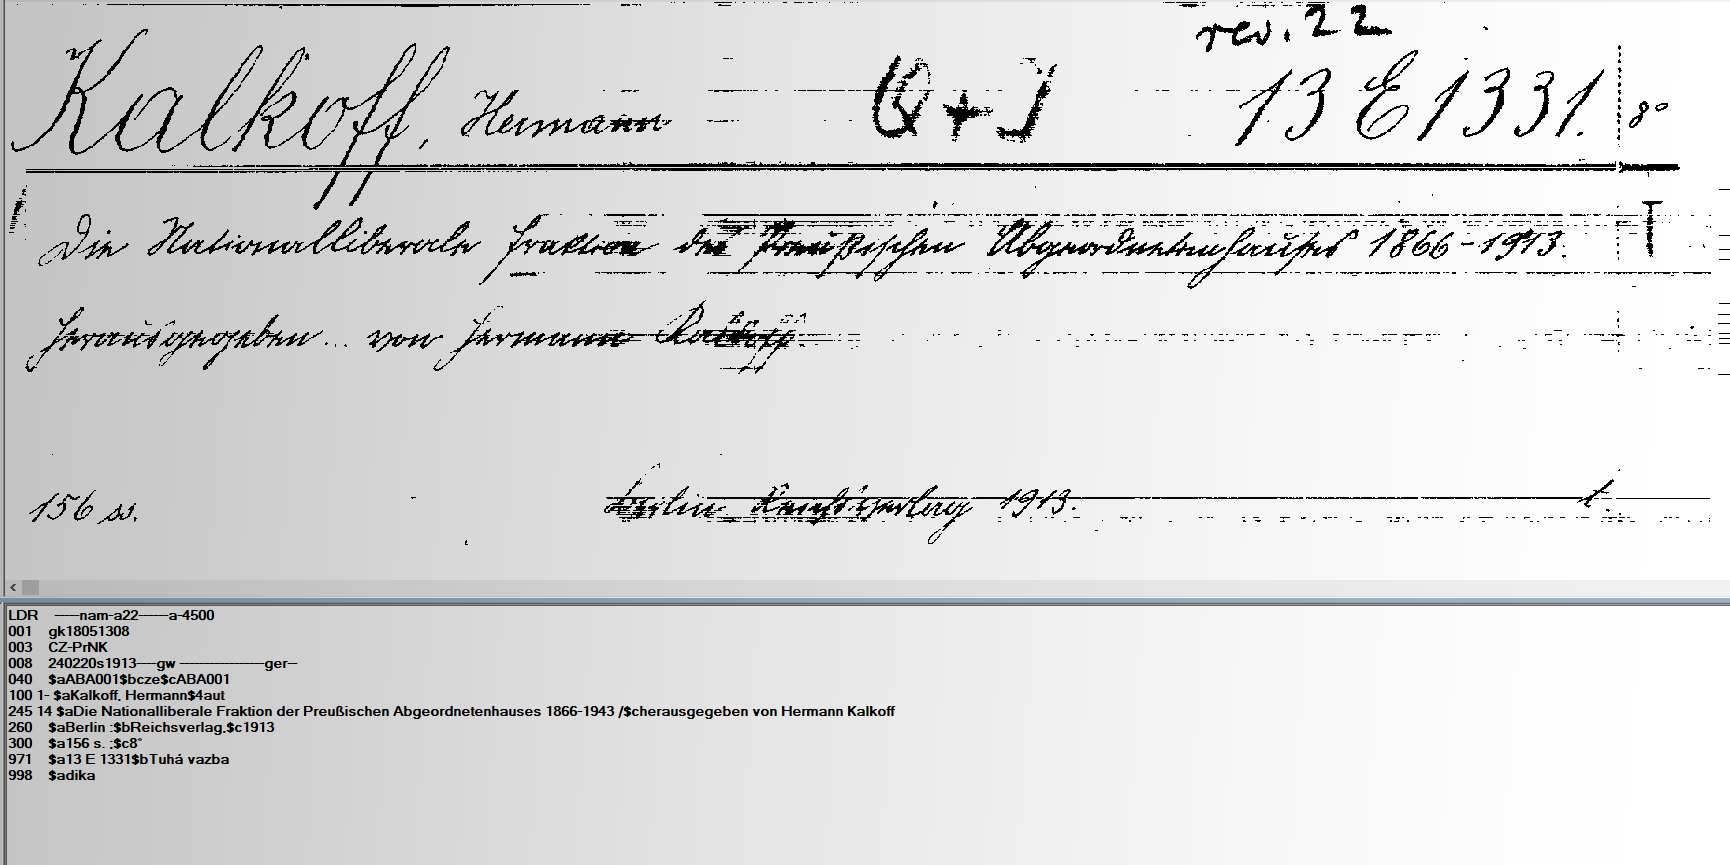 rev. 22
Kalkoff, Hermann Q+J 13 E 1331. 8°
Die Nationalliberale Fraktion des Preußischen Abgeordnetenhauses 1866-1913. T
herausgegeben... von Hermann Kalkoff.
156 ss. Berlin Reichsverlag 1913. t.
LDR -----nam-a22------a-4500
001 gk18051308
003 CZ-PrNK
008 240220s1913----gw -----------------ger--
040 $aABA001$bcze$cABA001
100 1- $aKalkoff, Hermann$4aut
245 14 $aDie Nationalliberale Fraktion der Preußischen Abgeordnetenhauses 1866-1943 /$cherausgegeben von Hermann Kalkoff
260 $aBerlin :$bReichsverlag,$c1913
300 $a156 s. ;$c8°
971 $a13 E 1331$bTuhá vazba
998 $adika